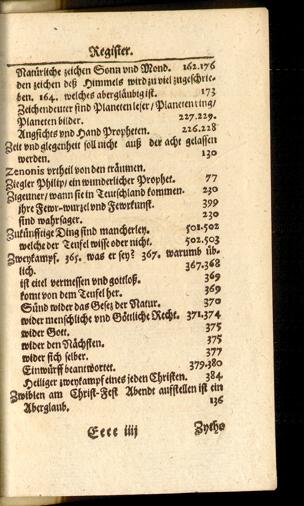 Register.
Natürliche zeichen Sonn vnd Mond. 162.176
den zeichen deß Himmels wird zu viel zugeschrie-
ben. 164. welches abergläubig ist. 173
Zeichendeuter sind Planeten leser / Planeten
Planeten bilder. 227.229.
Angsichts vnd Hand Propheten. 226.228
Zeit vnd glegenheit soll nicht auß der acht gelassen
werden. 130
Zenonis vrtheil von den träumen.
Ziegler Philip / ein wunderlicher Prophet. 77
Zigeuner / wann sie in Teutschland kommen. 230
jhre Fewr-wurzel vnd Fewrkunst. 399
sind wahrsager. 230
Zukünfftige Ding sind mancherley. 501.502
welche der Teufel wisse oder nicht. 502.503
Zweykampf. 365. was er sey? 367. warumb üb-
lich. 367.368
ist eitel vermessen vnd gottloß. 369
komt von dem Teufel her. 369
Sünd wider das Gesetz der Natur. 370
wider menschliche vnd Göttliche Recht. 371.374
wider Gott. 375
wider den Nächsten. 375
wider sich selber. 377
Einwürff beantwortet. 379.380
Heiliger zweykampf eines jeden Christen. 384.
Zwiblen am Christ-Fest Abendt aufstellen ist ein
Aberglaub. 136
Eeee iiij Zytho